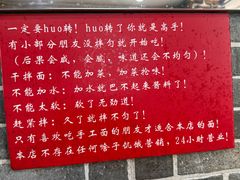 一定要huo转！huo转了你就是高手！
有小部分朋友没拌匀就开始吃！
（后果会咸，会咸，味道还会不均匀）！
干拌面：不能加菜，加菜抢味！
不能加水：加水就巴不起来酱料了！
不能太软：软了无劲道！
赶紧拌：久了就拌不匀了！
只有喜欢吃手工面的朋友才适合本店的面！
本店不存在任何啥子饥饿营销，24小时营业！